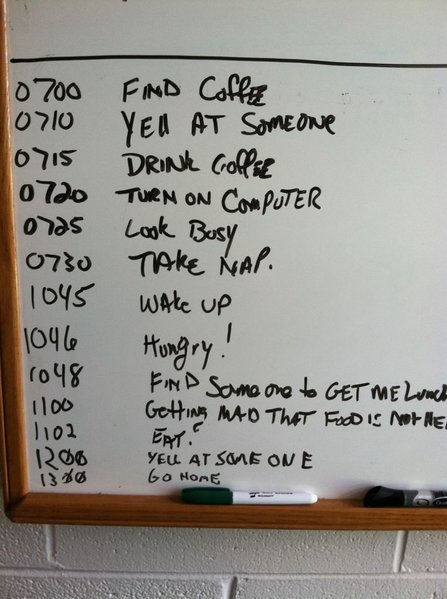 0700 FIND COFFEE
0710 YELL AT SOMEONE
0715 DRINK COFFEE
0720 TURN ON COMPUTER
0725 LOOK BUSY
0730 TAKE NAP.
1045 WAKE UP
1046 HUNGRY!
1048 FIND SOMEONE TO GET ME LUNCH
1100 GETTING MAD THAT FOOD IS NOT HE
1102 EAT!
1200 YELL AT SOMEONE
1300 GO HOME